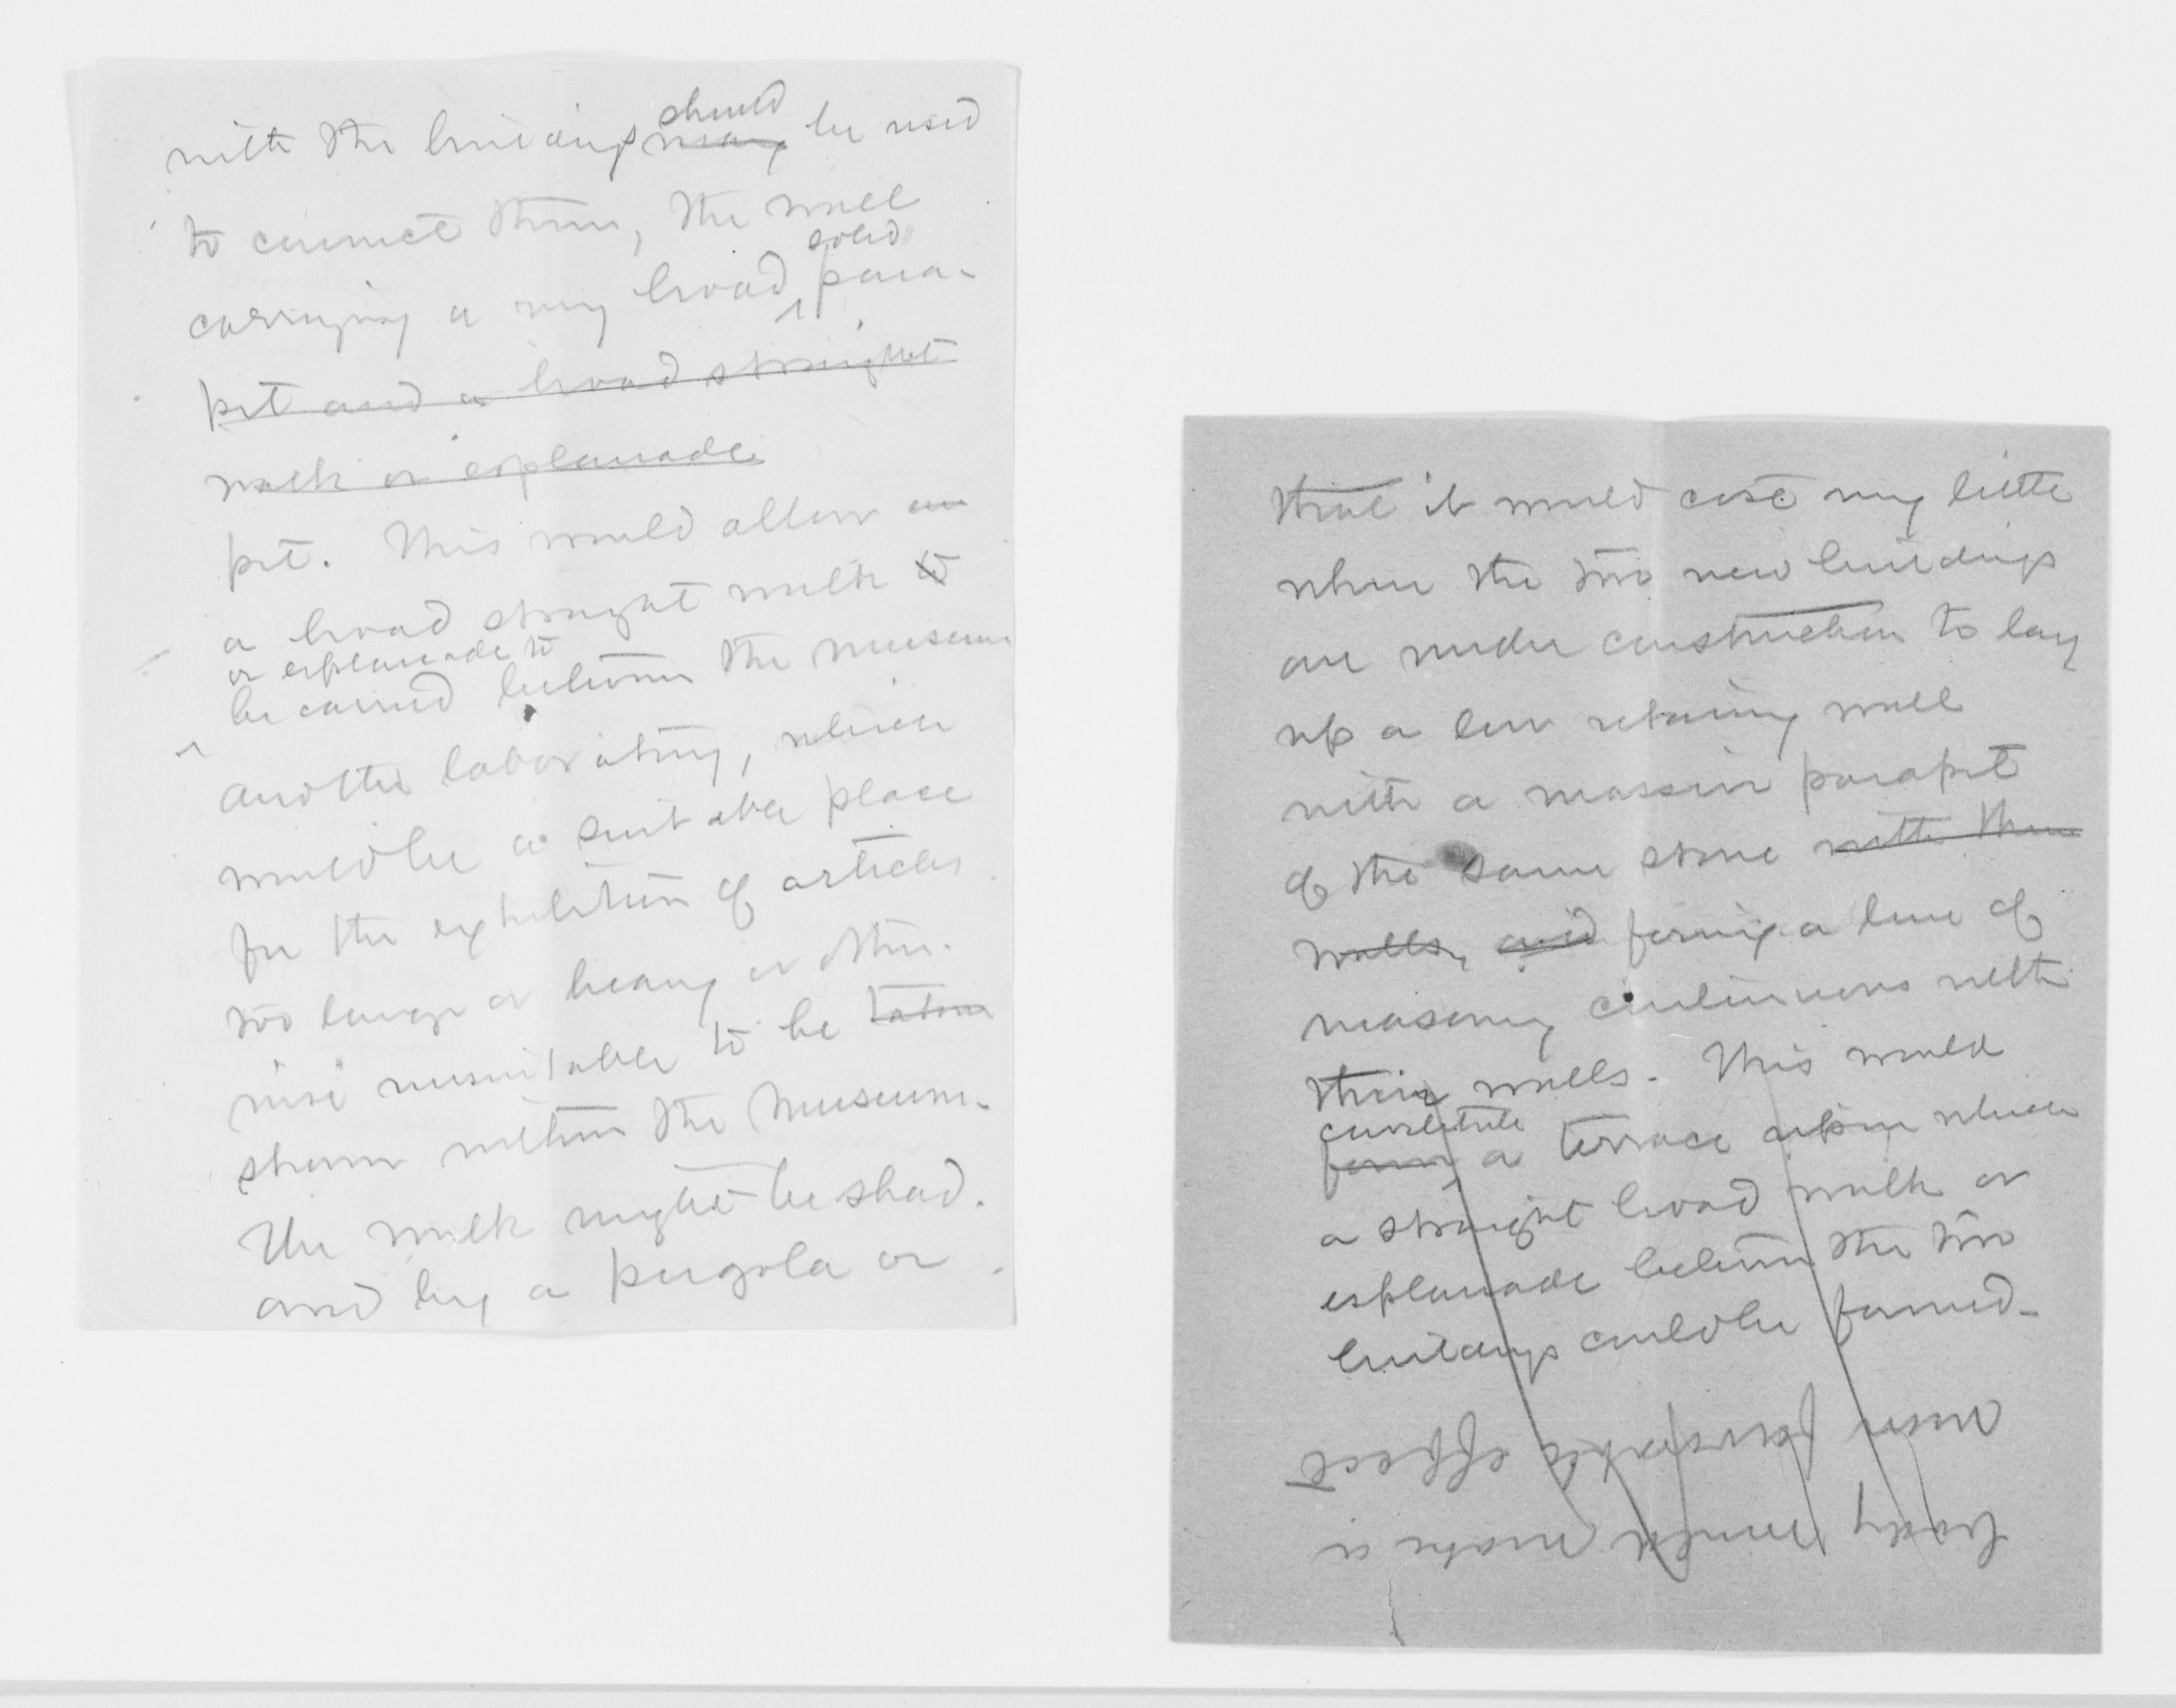 with the buildings should may be used
to connect them, the wall
carrying a very broad solid para-
pet and a broad straight
walk or esplanade
pet. This would allow an
a broad straight walk to
or esplanade to
be carried between the museum
and the laboratory, which
would be a suitable place
for the exhibition of articles
too large or heavy or other-
wise unsuitable to be taken
shown within the Museum.
The walk might be shad-
and by a pergola or
that it would cost very little
when the two new buildings
are under construction to lay
up a low retaining wall
with a massive parapet
of the same stone with their
walls, and forming a line of
masonry continuous with
their walls. This would
constitute
form a terrace upon which
a straight broad walk or
esplanade between the two
buildings could be formed.
body would make a
more favorable effect